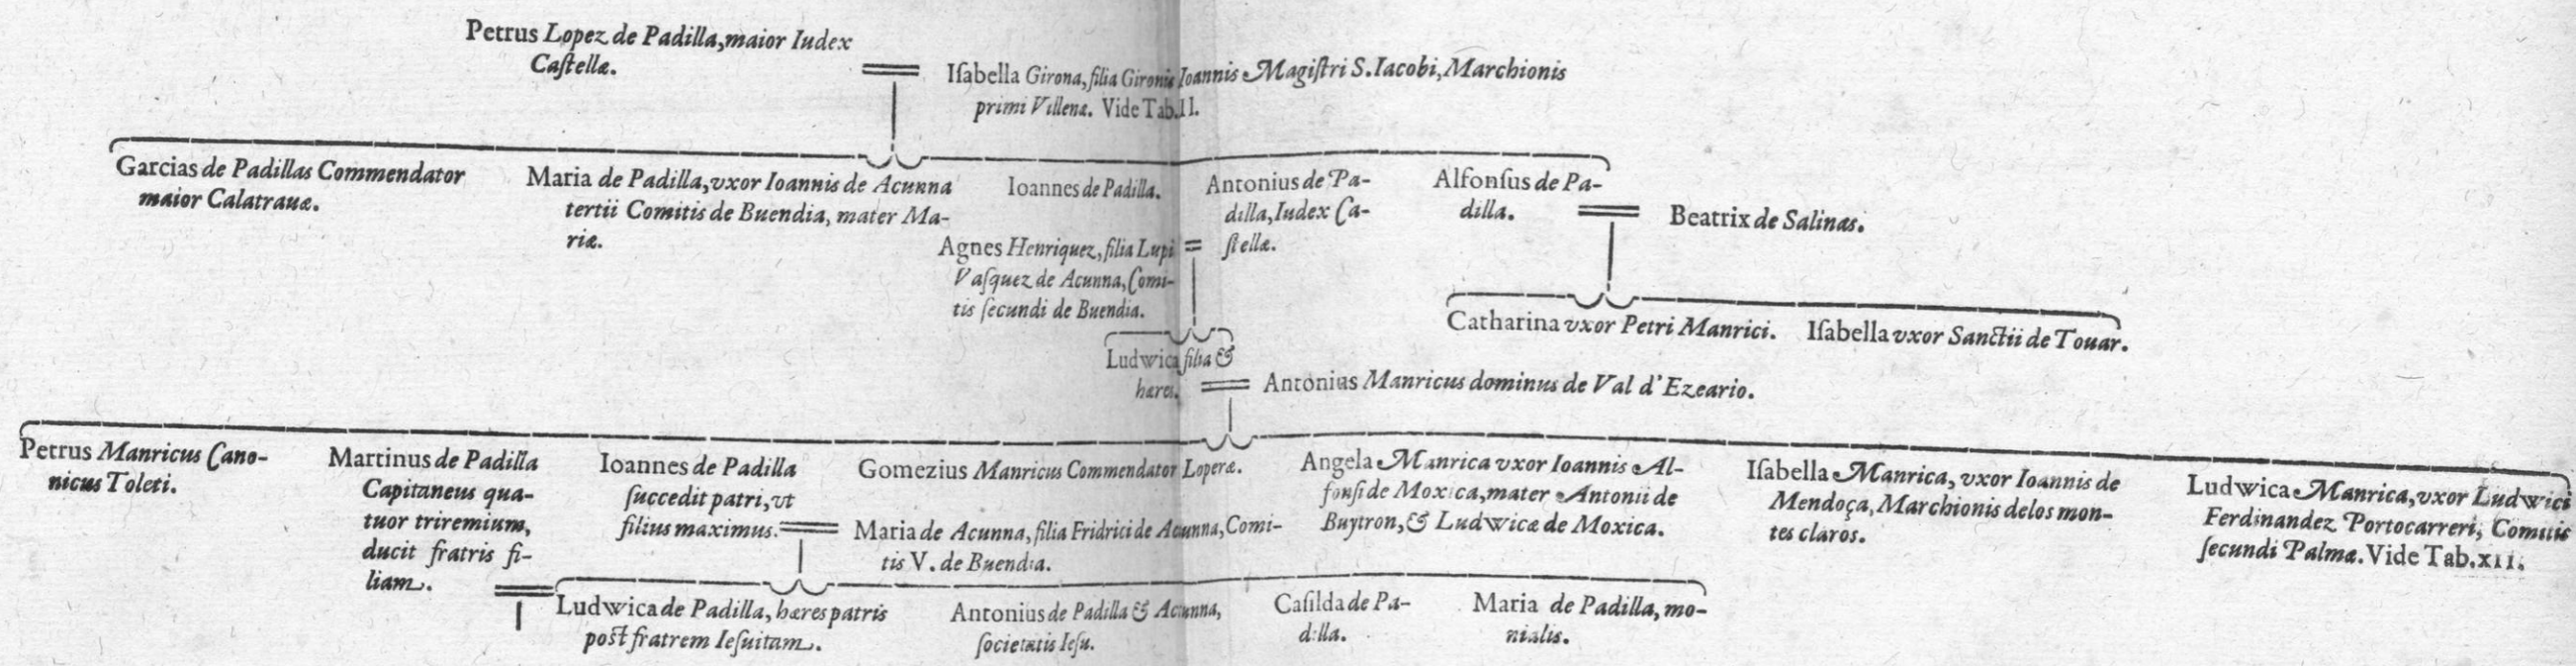 Petrus Lopez de Padilla, maior Iudex
Caſtellæ.
Iſabella Girona, filia Gironis Ioannis Magiſtri S. Iacobi, Marchionis
primi Villenæ. Vide Tab. II.
Garcias de Padillas Commendator
maior Calatrauæ.
Maria de Padilla, vxor Ioannis de Acunna
tertii Comitis de Buendia, mater Ma-
riæ.
Ioannes de Padilla.
Antonius de Pa-
dilla, Iudex Ca-
ſtellæ.
Alfonſus de Pa-
dilla.
Beatrix de Salinas.
Agnes Henriquez, filia Lupi
Vaſquez de Acunna, Comi-
tis ſecundi de Buendia.
Catharina vxor Petri Manrici.
Iſabella vxor Sanctii de Touar.
Ludwica filia &
hæres.
Antonius Manricus dominus de Val d'Ezeario.
Petrus Manricus Cano-
nicus Toleti.
Martinus de Padilla
Capitaneus qua-
tuor triremium,
ducit fratris fi-
liam.
Ioannes de Padilla
ſuccedit patri, vt
filius maximus.
Gomezius Manricus Commendator Loperæ.
Maria de Acunna, filia Fridrici de Acunna, Comi-
tis V. de Buendia.
Angela Manrica vxor Ioannis Al-
fonſi de Moxica, mater Antonii de
Buytron, & Ludwicæ de Moxica.
Iſabella Manrica, vxor Ioannis de
Mendoça, Marchionis delos mon-
tes claros.
Ludwica Manrica, vxor Ludwici
Ferdinandez Portocarreri, Comitis
ſecundi Palmæ. Vide Tab. XII.
Ludwica de Padilla, hæres patris
poſt fratrem Ieſuitam.
Antonius de Padilla & Acunna,
ſocietatis Ieſu.
Caſilda de Pa-
dilla.
Maria de Padilla, mo-
nialis.